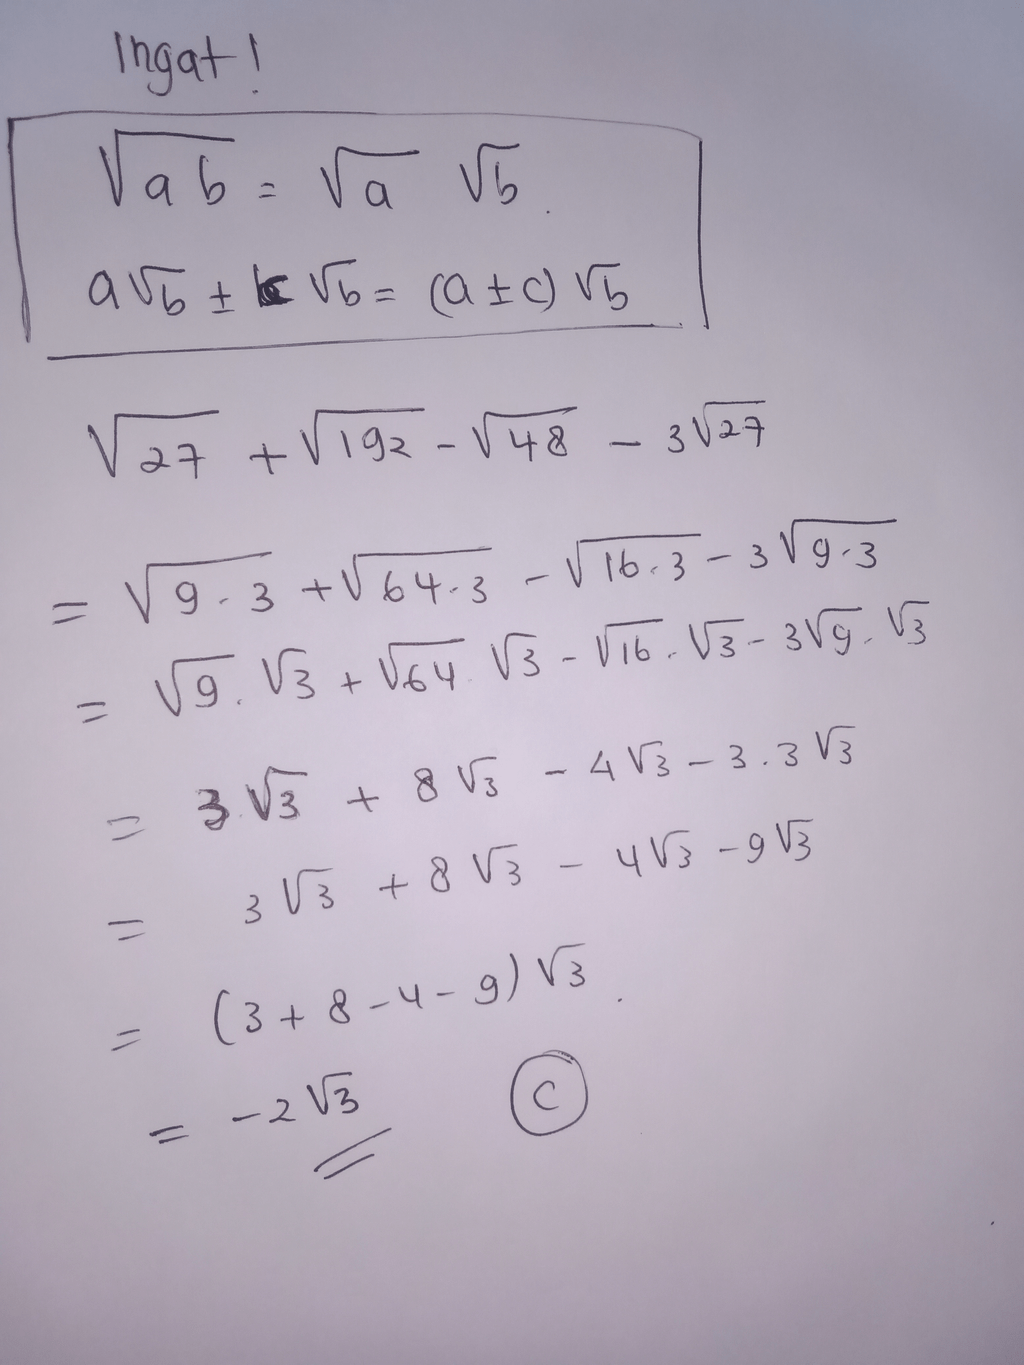 Ingat!
√ab = √a √b.
a√b ± c√b = (a ± c) √b
√27 + √192 - √48 - 3√27
= √9.3 + √64.3 - √16.3 - 3√9.3
= √9. √3 + √64. √3 - √16. √3 - 3√9. √3
= 3.√3 + 8√3 - 4√3 - 3.3√3
= 3√3 + 8√3 - 4√3 - 9√3
= (3 + 8 - 4 - 9) √3.
= -2√3 C